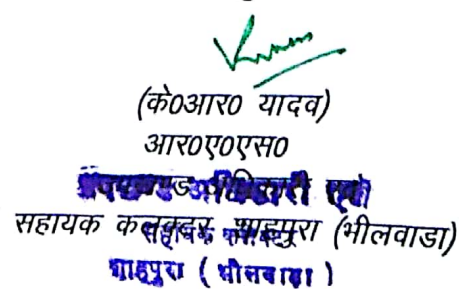 (के0आर0 यादव)
आर0ए0एस0
उपखण्ड अधिकारी एवं
सहायक कलक्टर शाहपुरा (भीलवाडा)
सहायक कलक्टर
शाहपुरा (भीलवाडा)